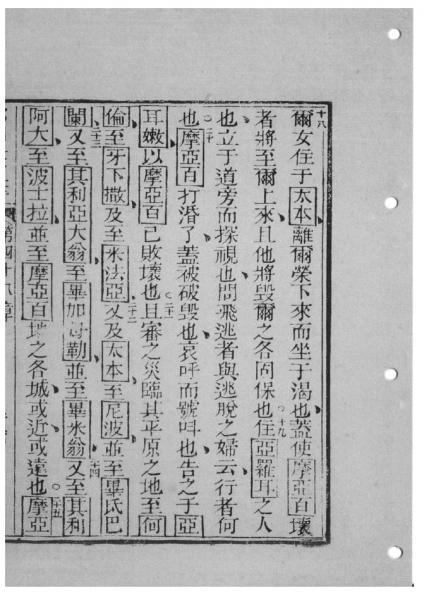 十八爾女住于太本離爾榮下來而坐于渴也蓋使摩亞百壞
者將至爾上來且他將毀爾之各固保也十九住亞羅耳之人
也立于道旁而探視也問飛逃者與逃脫之婦云行者何
也二十摩亞百打涽了蓋被破毀也哀呼而號呌也告之于亞
耳嫩以摩亞百已敗壞也二一且審之災臨其平原之地至何
倫至牙下撒及至米法亞二二又及太本至尼波並至畢氏巴
闌二三又至其利亞大翁至畢加母勒並至畢米翁二四又至其利
阿大至波士拉並至摩亞百地之各城或近或遠也二五摩亞
第四十八章